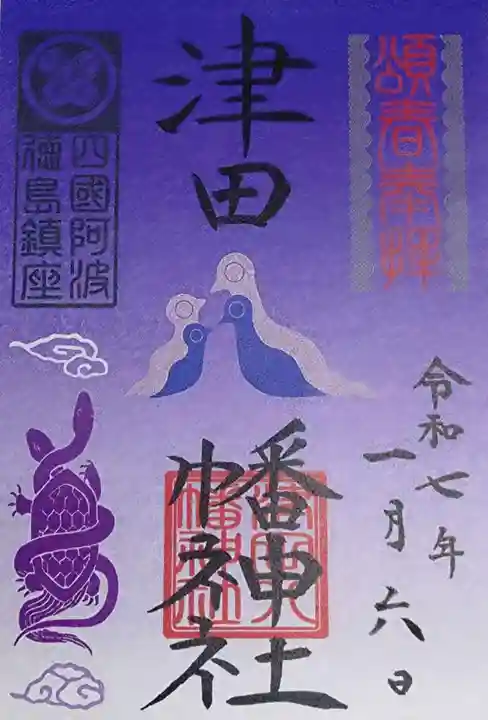 頌春奉拝
令和七年
一月六日
津田八幡神社
四國阿波
徳島鎮座